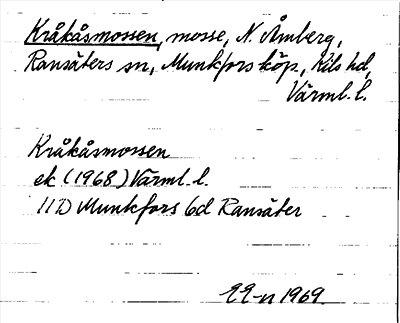 Kråkåsmossen, mosse, N. Åmberg,
Ransäters sn, Munkfors köp., Kils hd,
Värml. l.
Kråkåsmossen
ek (1968) Värml. l.
11D Munkfors 6d Ransäter
EE-n 1969